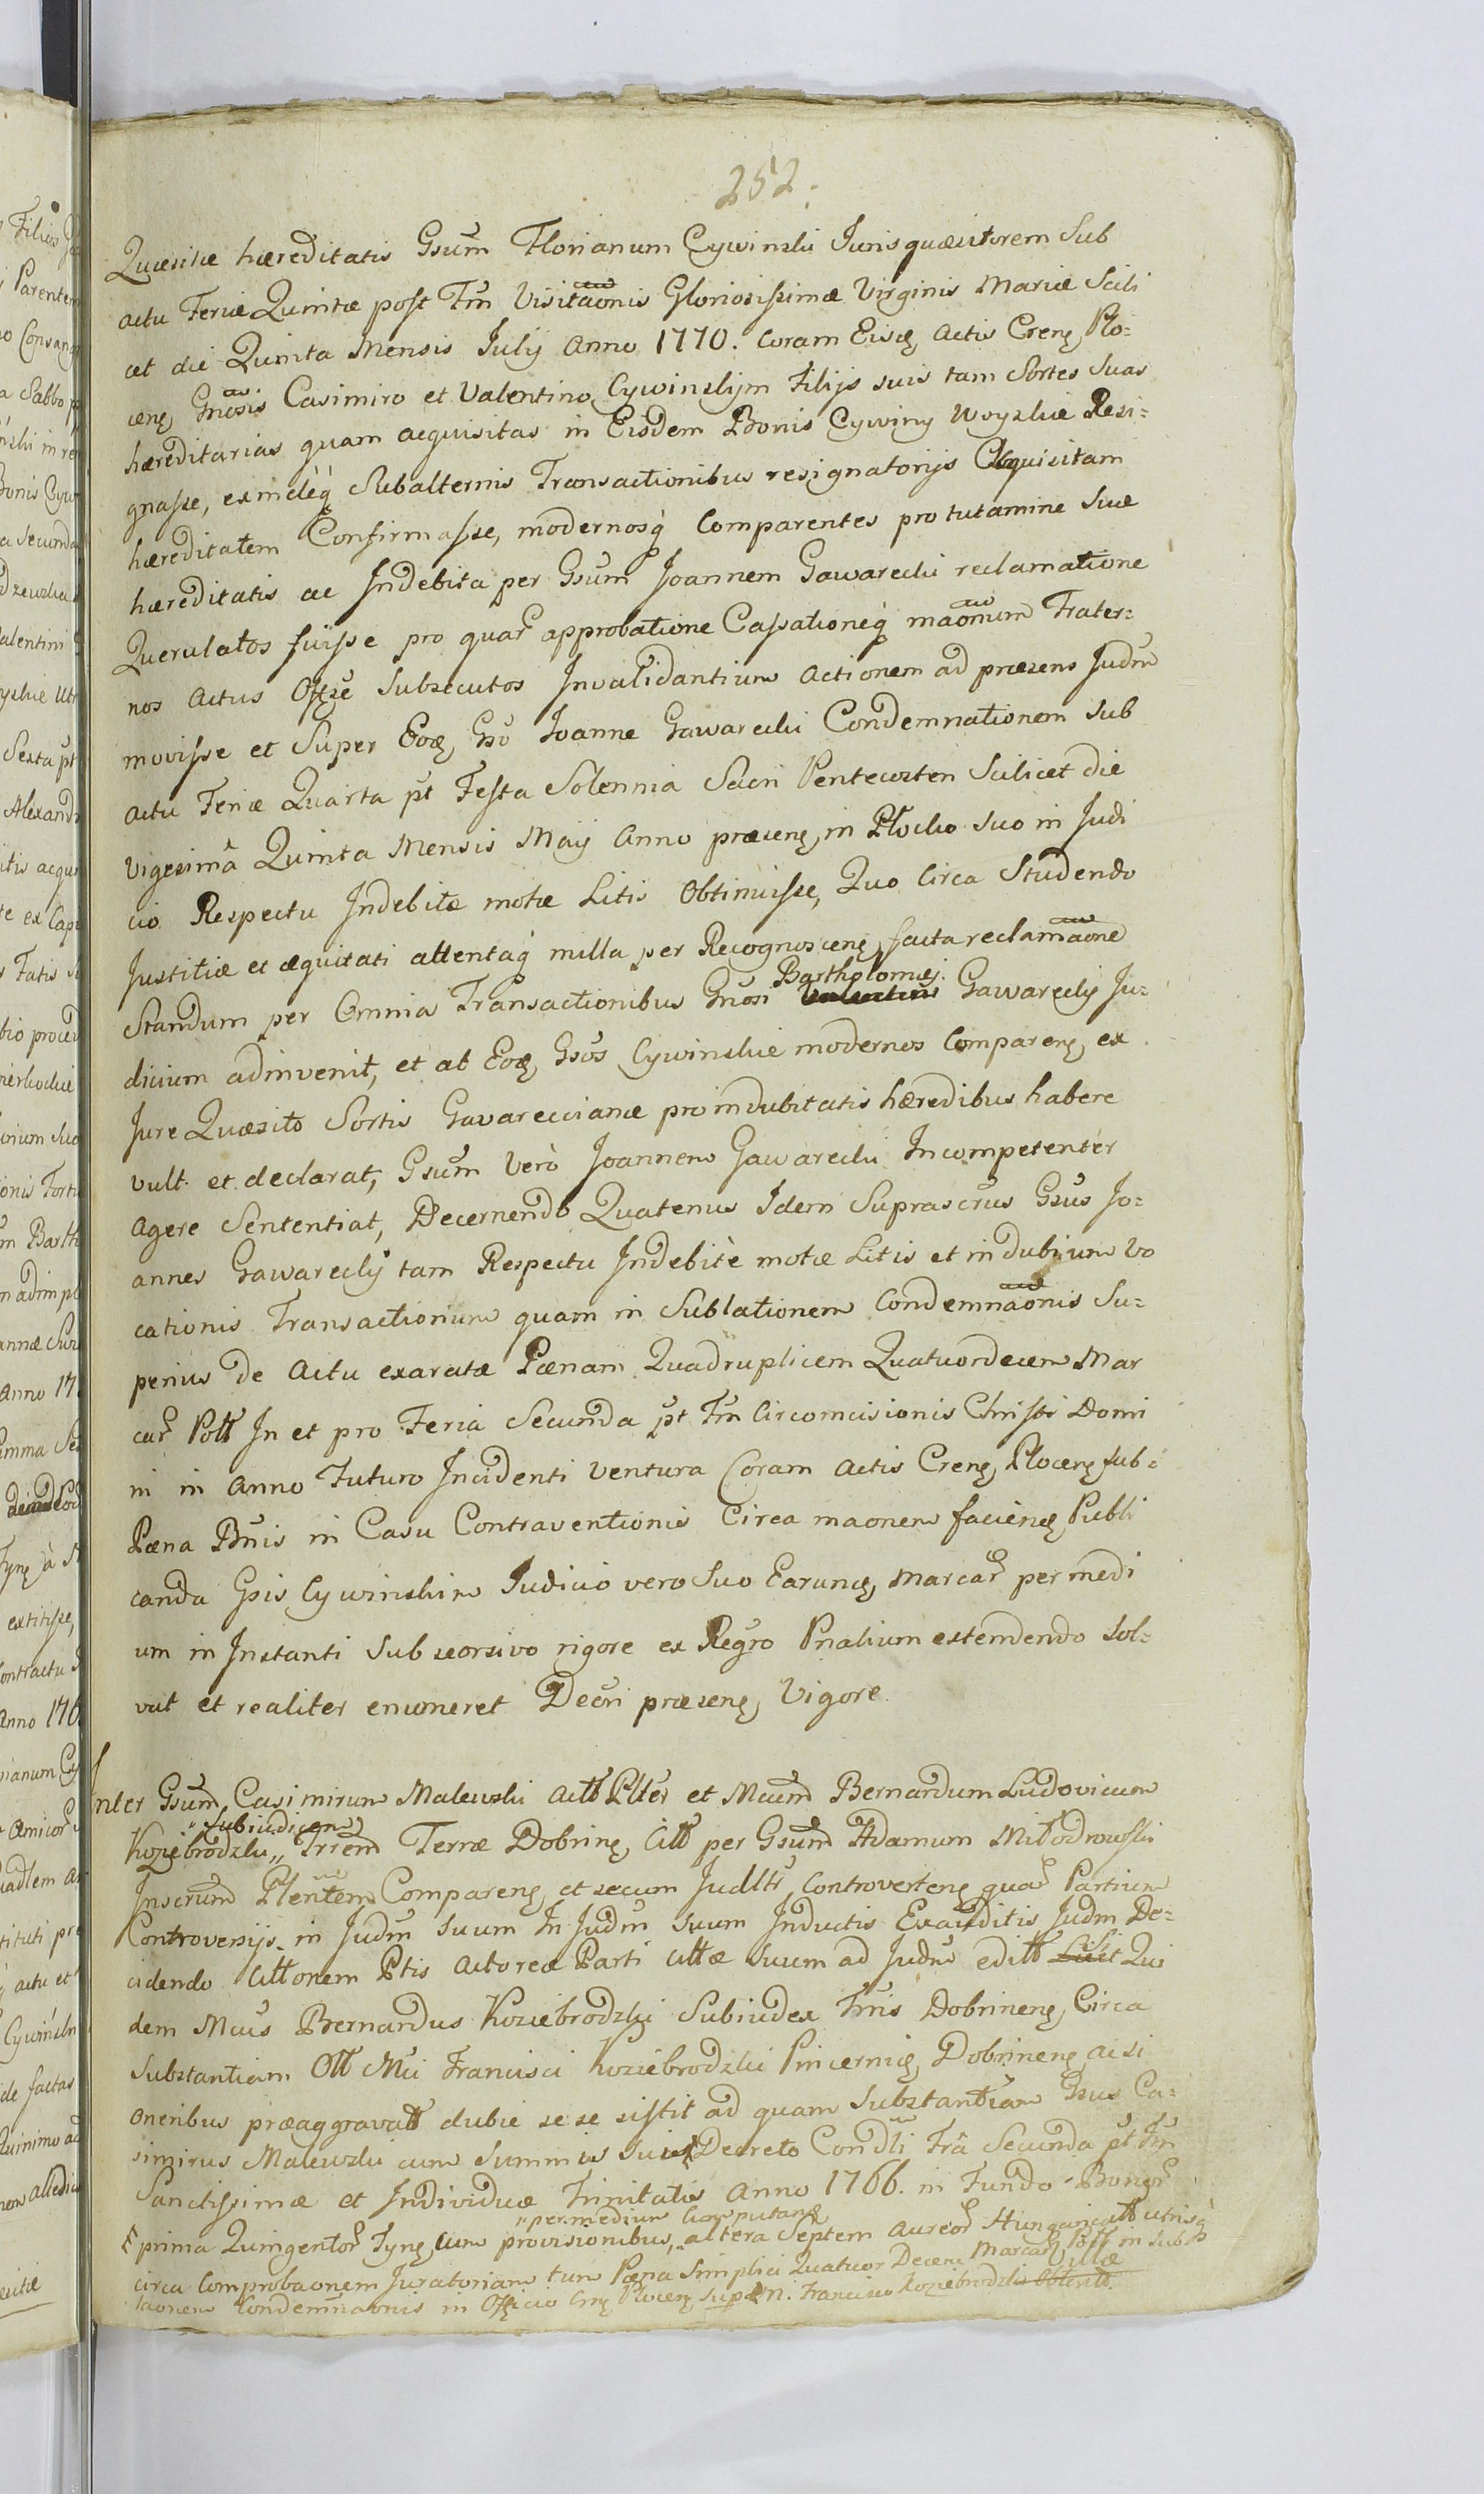 252.
Quæsitæ hæreditatis Gsum Florianum Cywinski Juris quæsitorem Sub
actu Feriæ Quintæ post Fm Visitaonis Gloriosissimæ Virginis Mariæ Scili
cet die Quinta Mensis Julij Anno 1770. coram Eisq Actis Creñ Plo-
ceñ Gnosis Casimiro et Valentino Cywinskijm Filijs suis tam Sortes Suas
hæreditarias quam acquisitas in Eisdem Bonis Cywiny Woyskie Resi-
gnasse, exindeq́ Subalternis Transactionibus resignatorijs Acquisitam
hæreditatem Confirmasse, modernosq́ Comparentes pro tutamine Suæ
hæreditatis ac Indebita per Gsum Joannem Gawarecki reclamatione
Querulatos fuisse pro quar approbatione Cassationeq́ maonum Frater-
nos Actus Osse Subsecutos Invalidantium Actionem ad præsens Judm
movisse et Super Eoq Gso Joanne Gawarecki Condemnationem sub
Actu Feriæ Quarta pt Festa Solennia Sacri Pentecosten Scilicet die
Vigesima Quinta Mensis Maij Anno præseñ in Plocko suo in Judi
cio Respectu Indebitæ motæ Litis Obtinuisse, Quo Circa Studendo
Justitiæ et æquitati attentaq́ nulla per Recognosceñ facta reclamaone
Bartholomæj
Standum per Omnia Transactionibus Gnosi Gawareckj Ju-
dicium adinvenit, et at Eoq Gsos Cywinskie modernos Compareñ ex
Jure Quæsito Sortis Gavareccianæ pro indubitatis hæredibus habere
vult et declarat, Gsum Verò Joannem Gawarecki Incompetenter
agere Sententiat, Decernendo Quatenus Idem Suprascrus Gsus Jo-
annes Gawareckj tam Respectu Indebitè motæ Litis et in dubium Vo
cationis Transactionum quam in Sublationem Condemnaonis Su-
perius de Actu exaratæ Pænam Quadruplicem Quatuordecem Mar
car Poll In et pro Feria Secunda pt Fm Circomcisionis Christi Domi
ni in Anno Futuro Incidenti Ventura Coram Actis Creñ Ploceñ sub-
Pæna Bnis in Casu Contraventionis Circa maonem facieñq Publi
canda Gsis Cywinskim Judicio vero Suo Earunq Marcar per medi
um in Instanti Sub seorsivo rigore ex Regro Pnalium extendendo sol-
vat et realiter enumeret Decri præseñ Vigore.
Inter Gsum Casimirum Malewski Actt Plter et Mcum Bernardum Ludovicum
„Subiudicem
Koziebrodzki„ Trrem Terræ Dobriñ, Citt per Gsum Adamum Miłodrowski
Inscrum Plentem Compareñ et secum Judltr Controverteñ quar Partium
Controversijs in Judm Suum In Judm Suum Inductis Exauditis Judm De-
cidendo Cittonem Ptis Actoreæ Parti Cittæ Suum ad Judm editt Qui
dem Mcus Bernardus Koziebrodzki Subiudex Trris Dobrineñ Circa
Substantiam Olt Mci Francisci Koziebrodzki Pincerniq Dobrineñ acsi
Oneribus præaggravatt dubie se se sistit ad quam Substantiam Gsus Ca-
simirus Malewski cum Summis Suis Decreto Condli Fra Secunda pt Fm
Sanctissimæ et Individuæ Trinitatis Anno 1766. in Fundo Bonor
„per medium Computanq
prima Quingentor Tyñ cum provisionibus, altera Septem Aureor Hungaricatt utrisq́
circa Comprobaonem Juratoriam tum Pæna Simplici Quatuor Decem Marcar Poll in Subla
taonem Condemnaonis in Officio Creñ Ploceñ Super N. Francisco Koziebrodzki